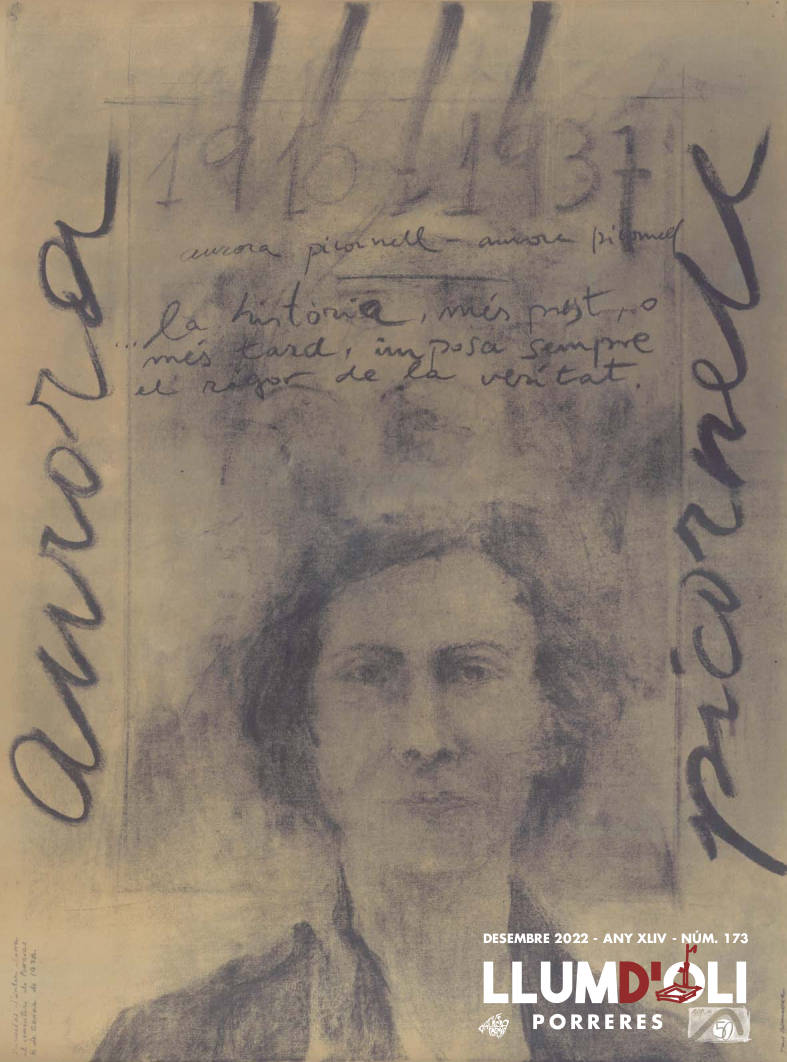 1910 - 1937
aurora picornell - aurora picornell
... la història, més prest, o
més tard, imposa sempre
el rigor de la veritat.
aurora
picornell
DESEMBRE 2022 - ANY XLIV - NÚM. 173
LLUM D'OLI
PORRERES